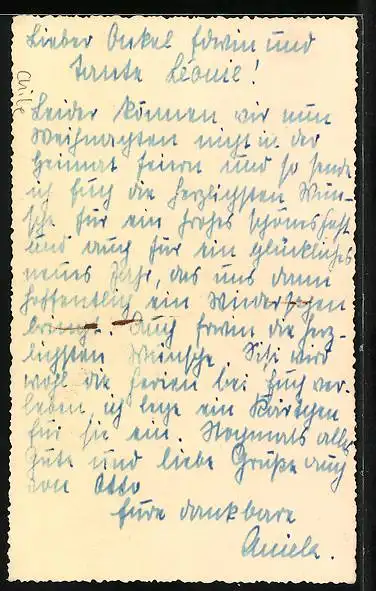 Lieber Onkel Edwin und
Tante Leonie!
Chile
Leider können wir nun
Weihnachten nicht in der
Heimat feiern und so sende
ich Euch die herzlichsten Wün-
sche für ein frohes schönes Fest
und auch für ein glückliches
neues Jahr, das uns dann
hoffentlich ein Wiedersehen
bringt. Auch Erwin die herz-
lichsten Wünsche. Sisi wird
wohl die Ferien bei Euch ver-
leben, ich lege ein Kärtchen
für sie ein. Nochmals alles
Gute und liebe Grüße auch
von Otto
Eure dankbare
Aniela.